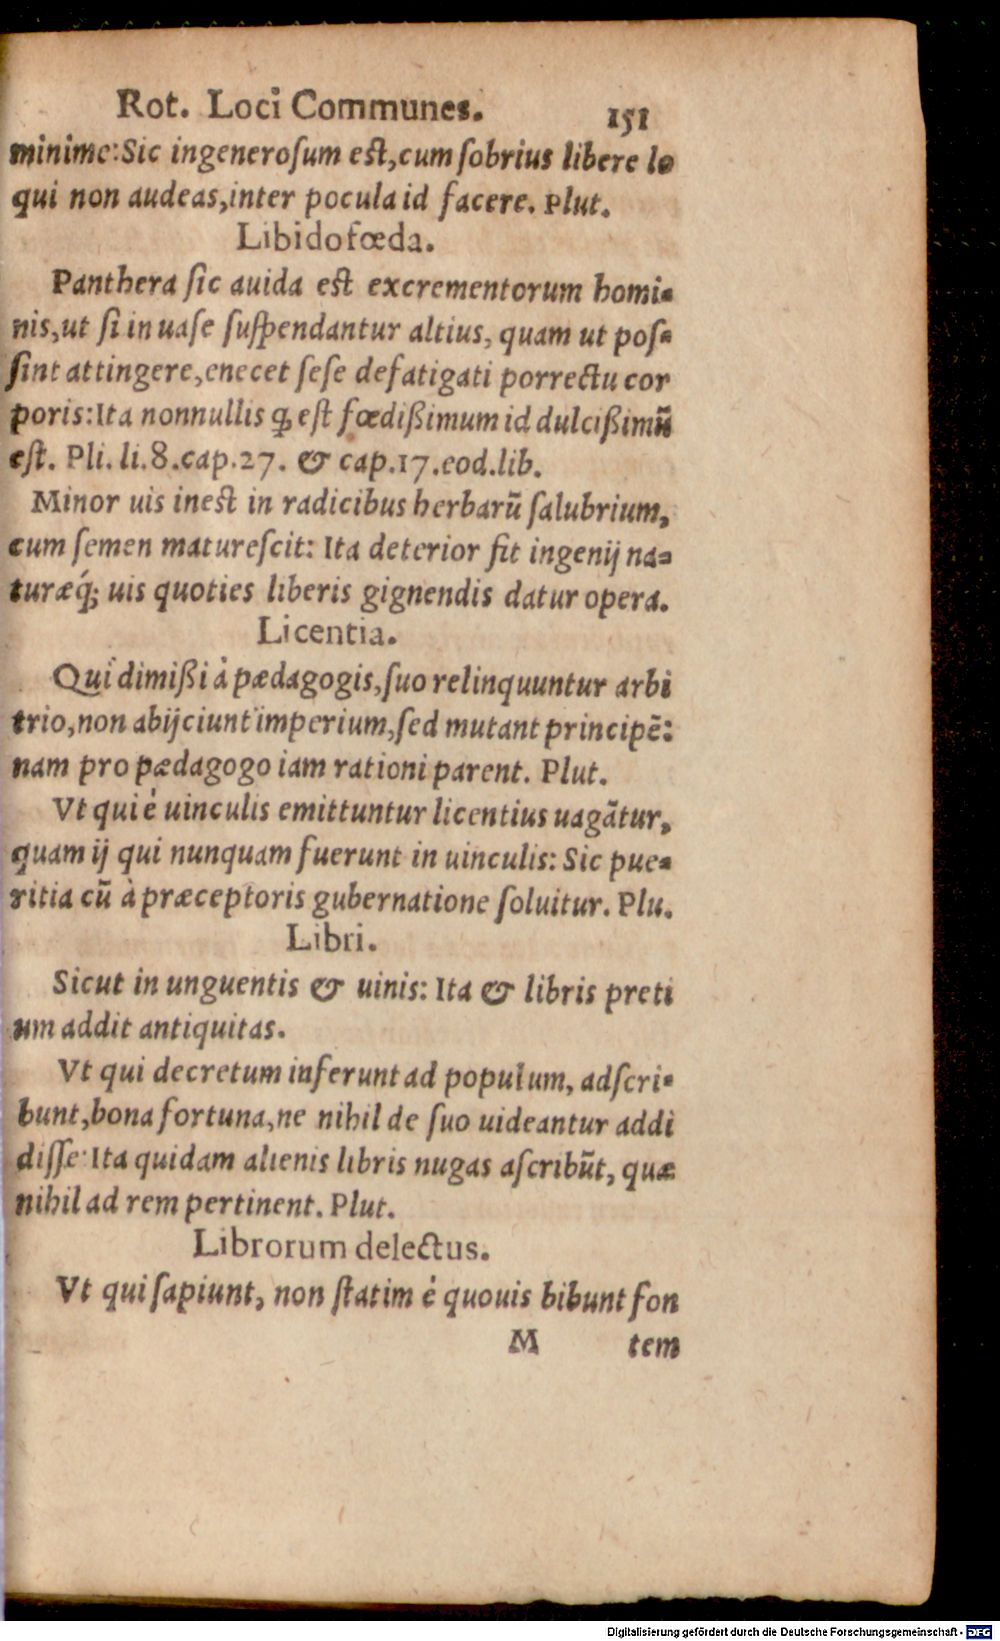 Rot. Loci Communes. 151
minime: Sic ingenerosum est, cum sobrius libere lo
qui non audeas, inter pocula id facere. Plut.
Libido fœda.
Panthera sic auida est excrementorum homi-
nis, ut si in uase suspendantur altius, quam ut pos-
sint attingere, enecet sese defatigati porrectu cor
poris: Ita nonnullis ꝙ est fœdißimum id dulcißimũ
est. Pli. li. 8. cap. 27. & cap. 17. eod. lib.
Minor uis inest in radicibus herbarũ salubrium,
cum semen maturescit: Ita deterior fit ingenij na-
turæq́; uis quoties liberis gignendis datur opera.
Licentia.
Qui dimißi à pædagogis, suo relinquuntur arbi
trio, non abijciunt imperium, sed mutant principẽ:
nam pro pædagogo iam rationi parent. Plut.
Vt qui è uinculis emittuntur licentius uagãtur,
quam ij qui nunquam fuerunt in uinculis: Sic pue-
ritia cũ à præceptoris gubernatione soluitur. Plu.
Libri.
Sicut in unguentis & uinis: Ita & libris preti
um addit antiquitas.
Vt qui decretum inferunt ad populum, adscri-
bunt, bona fortuna, ne nihil de suo uideantur addi
disse: Ita quidam alienis libris nugas ascribũt, quæ
nihil ad rem pertinent. Plut.
Librorum delectus.
Vt qui sapiunt, non statim è quouis bibunt fon
M tem
Digitalisierung gefördert durch die Deutsche Forschungsgemeinschaft - DFG